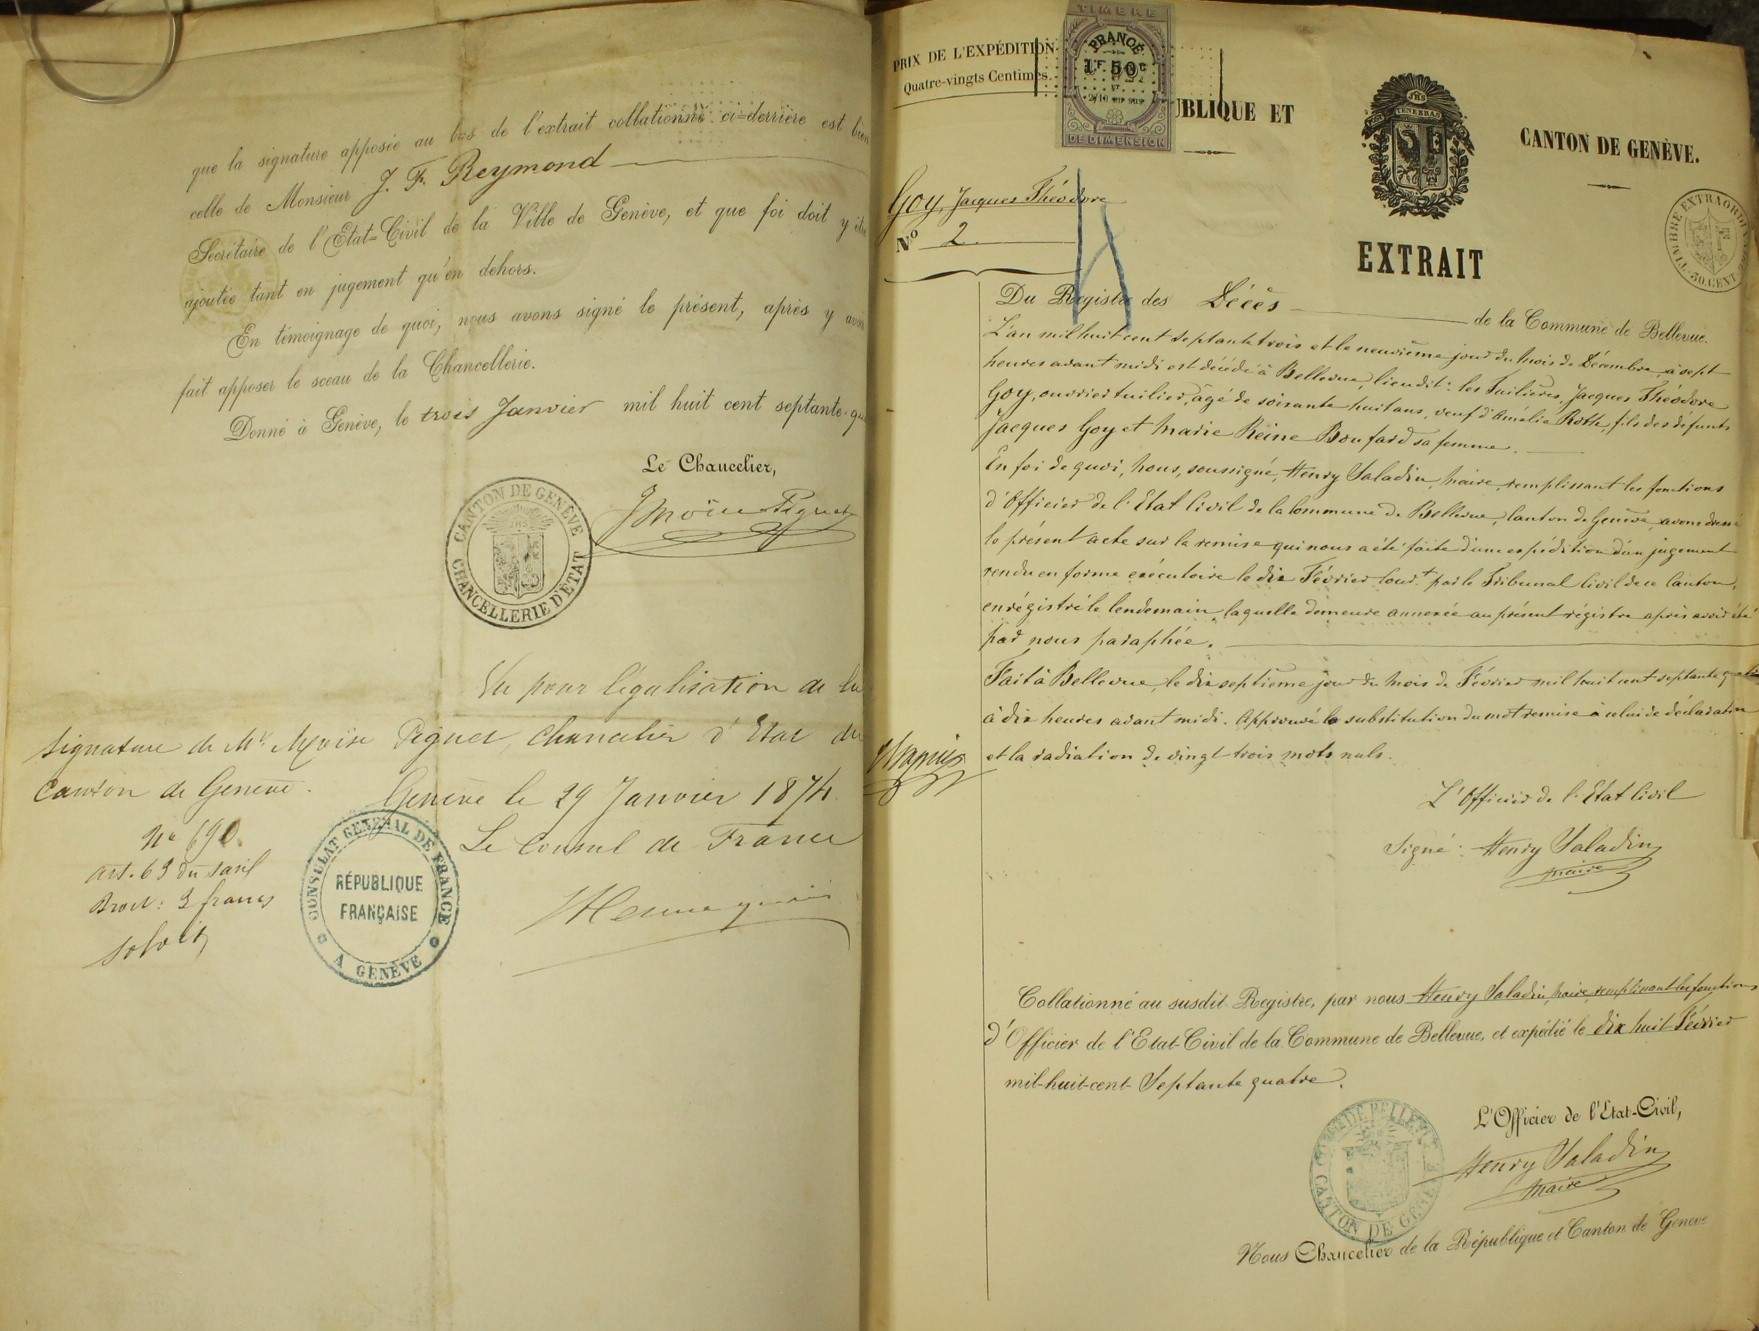 que la signature apposée au bas de l'extrait collationné ci-derrière est bien
celle de Monsieur J. F. Reymond
Secrétaire de l'Etat-Civil de la Ville de Genève, et que foi doit y être
ajoutée tant en jugement qu'en dehors.
En témoignage de quoi, nous avons signé le présent, après y avoir
fait apposer le sceau de la Chancellerie.
Donné à Genève, le trois Janvier mil huit cent septante-qu
Le Chancelier,
Moïse Piguet
CANTON DE GENÈVE
CHANCELLERIE D'ÉTAT
Vu pour légalisation de la
signature de Mr Moïse Piguet, Chancelier d'Etat du
Canton de Genève.
Genève le 29 Janvier 1874
Le Consul de France
No 690.
art. 63 du tarif
Droit: 3 francs
CONSULAT GENERAL DE FRANCE
RÉPUBLIQUE
FRANÇAISE
A GENÈVE
PRIX DE L'EXPÉDITION
Quatre-vingts Centimes.
TIMBRE
FRANCE
1F 50C
2/10 EN SUS
DE DIMENSION
UBLIQUE ET
CANTON DE GENÈVE.
TIMBRE EXTRAORD
30. CENT
Goy, Jacques Théodore
No 2
EXTRAIT
Du Registre des Décès de la Commune de Bellevue.
L'an mil huit cent septante trois et le neuvième jour du mois de Décembre, à sept
heures avant midi est décédé à Bellevue, lieu dit: les Tuilières, Jacques Théodore
Goy, ouvrier tuilier, âgé de soixante huit ans, veuf d'Amélie Roth, fils des défunts
Jacques Goy et Marie Reine Boufard sa femme.
En foi de quoi, nous, soussigné, Henry Saladin, maire, remplissant les fonctions
d'Officier de l'Etat Civil de la Commune de Bellevue, Canton de Genève, avons dressé
le présent acte sur la remise qui nous a été faite d'une expédition d'un jugement
rendu en forme exécutoire le dix Février cour.t par le Tribunal Civil de ce Canton,
enrégistré le lendemain, laquelle demeure annexée au présent régistre après avoir été
par nous paraphée.
Fait à Bellevue, le dix septième jour du mois de Février mil huit cent septante quatre
à dix heures avant midi. Approuvé la substitution du mot remise à celui de déclaration
et la radiation de vingt trois mots nuls.
L'Officier de l'Etat Civil
Signé: Henry Saladin
maire
Collationné au susdit Registre, par nous Henry Saladin, maire, remplissant les fonctions
d'Officier de l'Etat-Civil de la Commune de Bellevue, et expédié le dix huit Février
mil-huit-cent Septante quatre.
L'Officier de l'Etat-Civil,
Henry Saladin
maire
CANTON DE GENÈVE
Nous Chancelier de la République et Canton de Genève